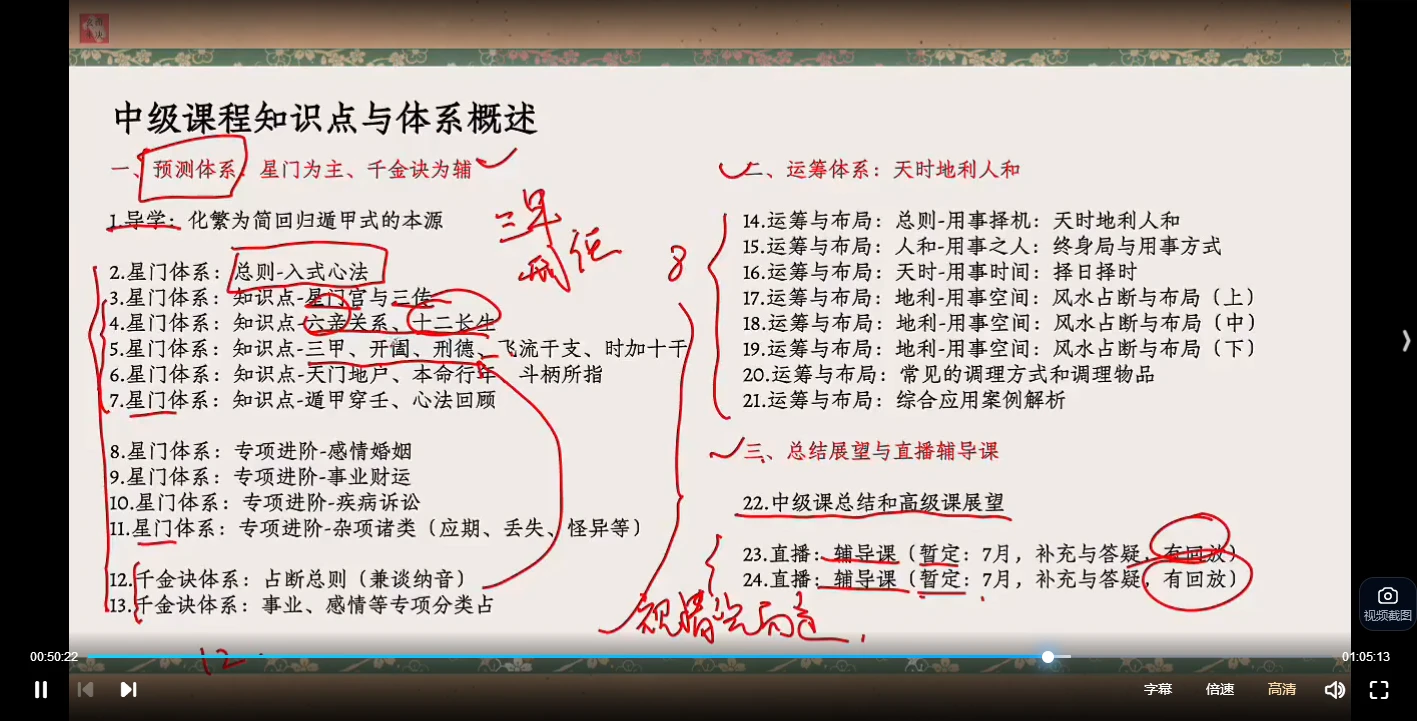 中级课程知识点与体系概述
一、预测体系：星门为主、千金诀为辅
1.导学：化繁为简回归遁甲式的本源
2.星门体系：总则-入式心法
3.星门体系：知识点-星门宫与三传
4.星门体系：知识点-六亲关系、十二长生
5.星门体系：知识点-三甲、开阖、刑德、飞流干支、时加十干
6.星门体系：知识点-天门地户、本命行年 斗柄所指
7.星门体系：知识点-遁甲穿壬、心法回顾
8.星门体系：专项进阶-感情婚姻
9.星门体系：专项进阶-事业财运
10.星门体系：专项进阶-疾病诉讼
11.星门体系：专项进阶-杂项诸类（应期、丢失、怪异等）
12.千金诀体系：占断总则（兼谈纳音）
13.千金诀体系：事业、感情等专项分类占
12
8
二、运筹体系：天时地利人和
14.运筹与布局：总则-用事择机：天时地利人和
15.运筹与布局：人和-用事之人：终身局与用事方式
16.运筹与布局：天时-用事时间：择日择时
17.运筹与布局：地利-用事空间：风水占断与布局（上）
18.运筹与布局：地利-用事空间：风水占断与布局（中）
19.运筹与布局：地利-用事空间：风水占断与布局（下）
20.运筹与布局：常见的调理方式和调理物品
21.运筹与布局：综合应用案例解析
三、总结展望与直播辅导课
22.中级课总结和高级课展望
23.直播：辅导课（暂定：7月，补充与答疑，有回放）
24.直播：辅导课（暂定：7月，补充与答疑，有回放）
视频截图
00:50:22
01:05:13
字幕 倍速 高清